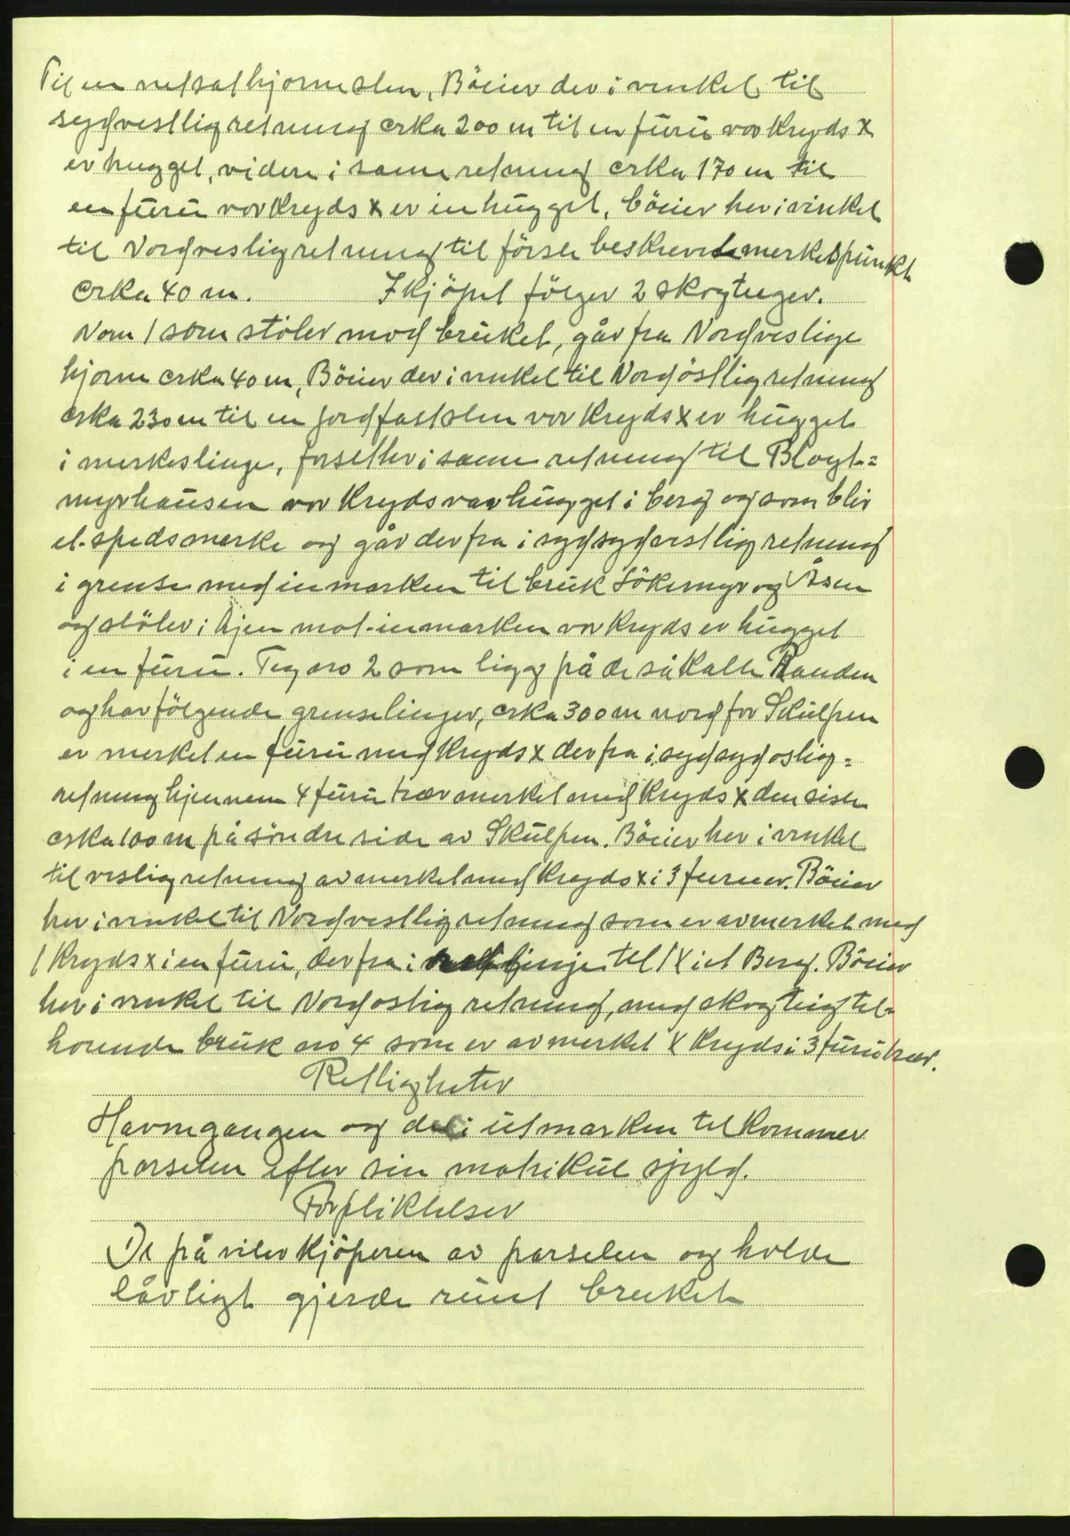 Til en netsat hjørnesten, Böier der i vinkel til
sydvestlig retning crka 200 m til en furu vor Kryds X
er hugget, videre i same retning crka 170 m til
en furu vor Kryds X er inhugget, böier her i vinkel
til Nordvestlig retning til förste beskrevete merkespunkt
crka 40 m. I kjöpet fölger 2 skogteiger.
Nom 1 som stöter mod bruket, går fra Nordveslige
hjorne crka 40 m, Böier der i vinkel til Nordöstlig retning
crka 230 m til en jordfast sten vor Kryds X er hugget
i merkeslinge, forsetter i same retning til Bloyt=
myrhausen vor Kryds var hugget i berg og som blir
et spedsmerke og går der fra i sydsydvestlig retning
i grense med inmarken til bruk Sökemyr og Åsen
og stöter i hjen mot inmarken vor Kryds er hugget
i en furu. Teg no 2 som ligg på de såkalte Randen
og har fölgende grenselinjer, crka 300 m nord for Skulpen
er merket en furu med Kryds X der fra i sydsydostlig=
retning hjennem 4 furu træv merket med Kryds X den siste
crka 100 m på söndre side av Skulpen. Böier her i vinkel
til veslig retning avmerket med Kryds X i 3 furuer. Böier
her i vinkel til Nordvestlig retning som er avmerket med
1 Kryds X i en furu, der fra i linje til 1 X i et Berg. Böier
her i vinkel til Nordostlig retning, med skogteig til-
horende bruk no 4 som er avmerket X Kryds i 3 furutrær.
Rettigheter
Havngangen og del i utmarken tilkommer
parselen efter sin matrikul skyld.
Forpliktelser
De på viler kjöperen av parselen og holde
lövligt gjerde runt bruket